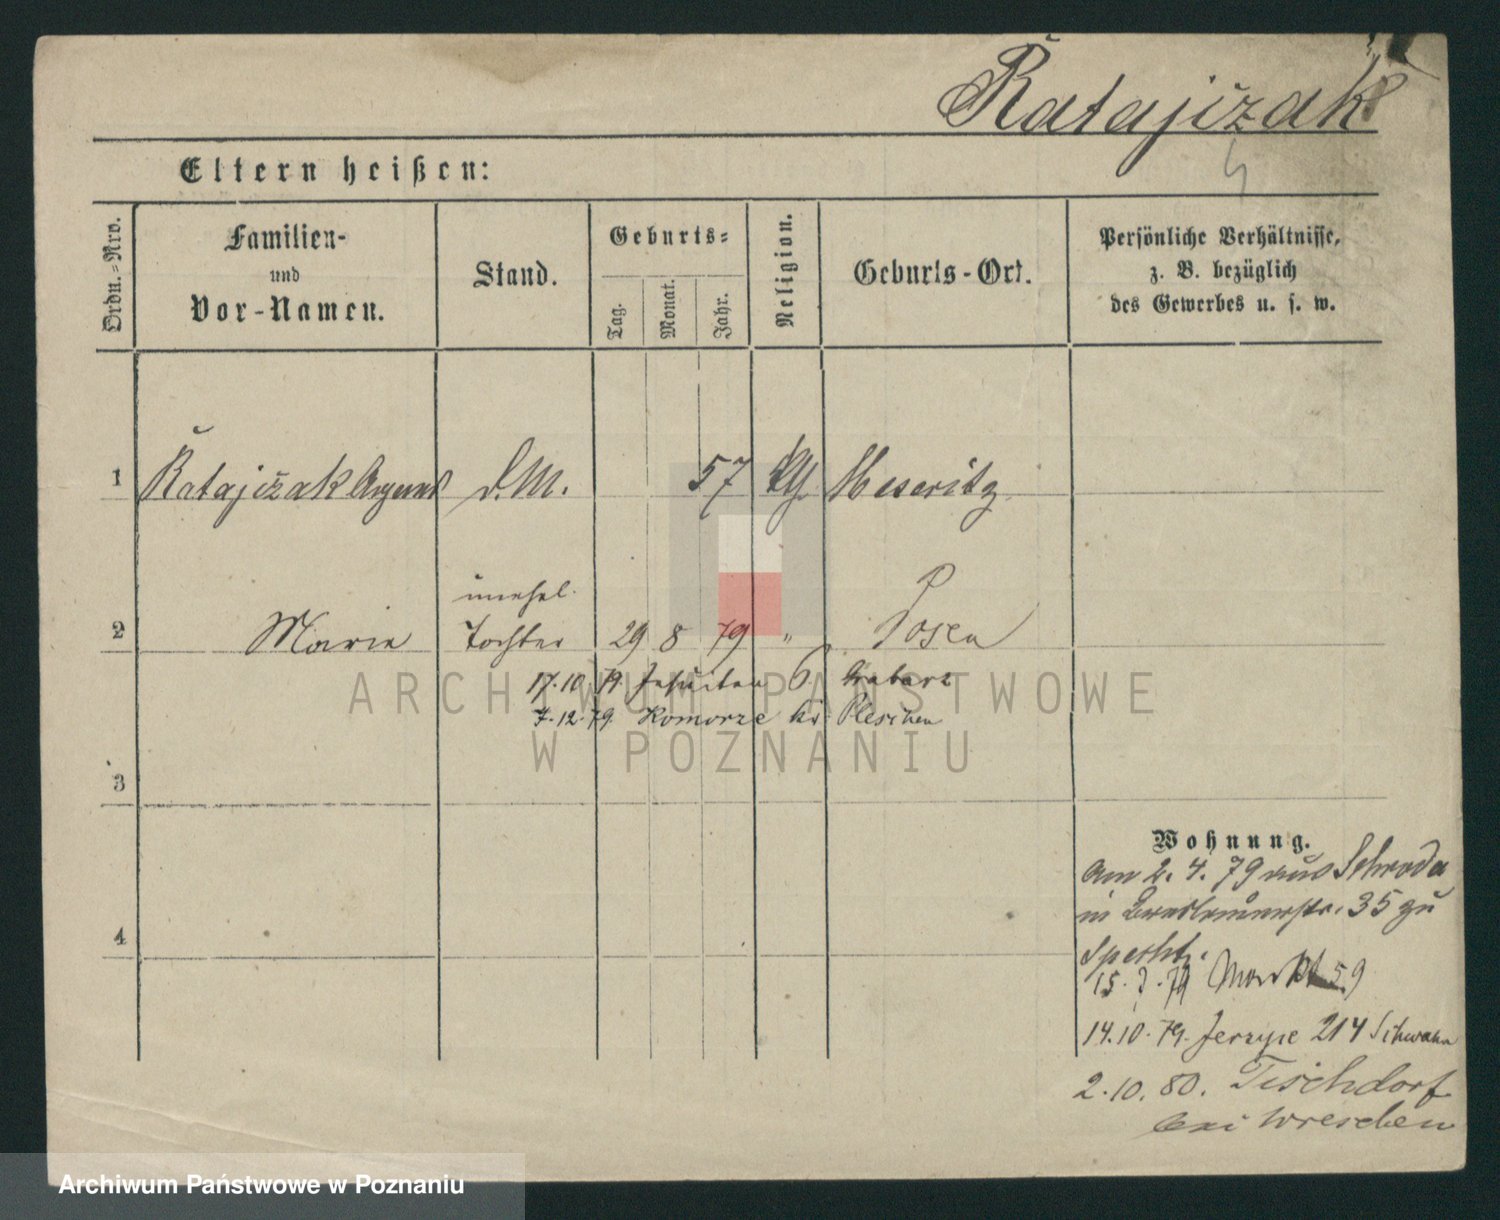 Ratajizak
Eltern heißen:
Ordn.-Nro.
Familien-
und
Vor-Namen.
Stand.
Geburts-
Tag.
Monat.
Jahr.
Religion.
Geburts-Ort.
Persönliche Verhältnisse,
z. B. bezüglich
des Gewerbes u. s. w.
1 Ratajizak d. M. 57 Meseritz
unehel.
2 Marie Tochter 29 8 79 " Posen
17.10.79. Jesuiten
7.12.79. Komorze Kr. Pleschen
3
4
Wohnung.
am 2. 4. 79 aus Schroda
in 35 zu
Specht.
15. 7. 79 Markt 59
14.10.79. Jerzyce 214 Schwahn
2.10.80. Tischdorf
bei Wreschen
ARCHIWUM PAŃSTWOWE
W POZNANIU
Archiwum Państwowe w Poznaniu